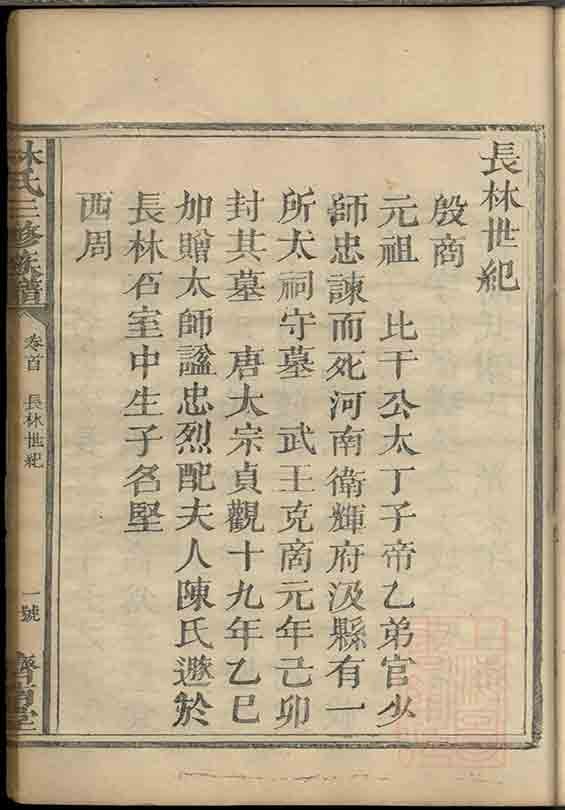 長林世紀
殷商
元祖　比干公太丁子帝乙弟官少
師忠諫而死河南衛輝府汲縣有一
所太祠守墓　武王克商元年己卯
封其墓　唐太宗貞觀十九年乙巳
加贈太師諡忠烈配夫人陳氏遯於
長林石室中生子名堅
西周
林氏三修族譜
卷首　長林世紀
一號